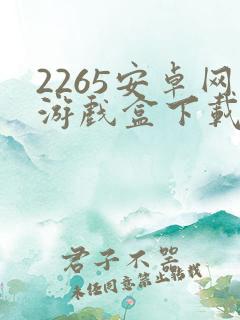 2265安卓网
游戏盒下载
君子不器
未经同意禁止转载